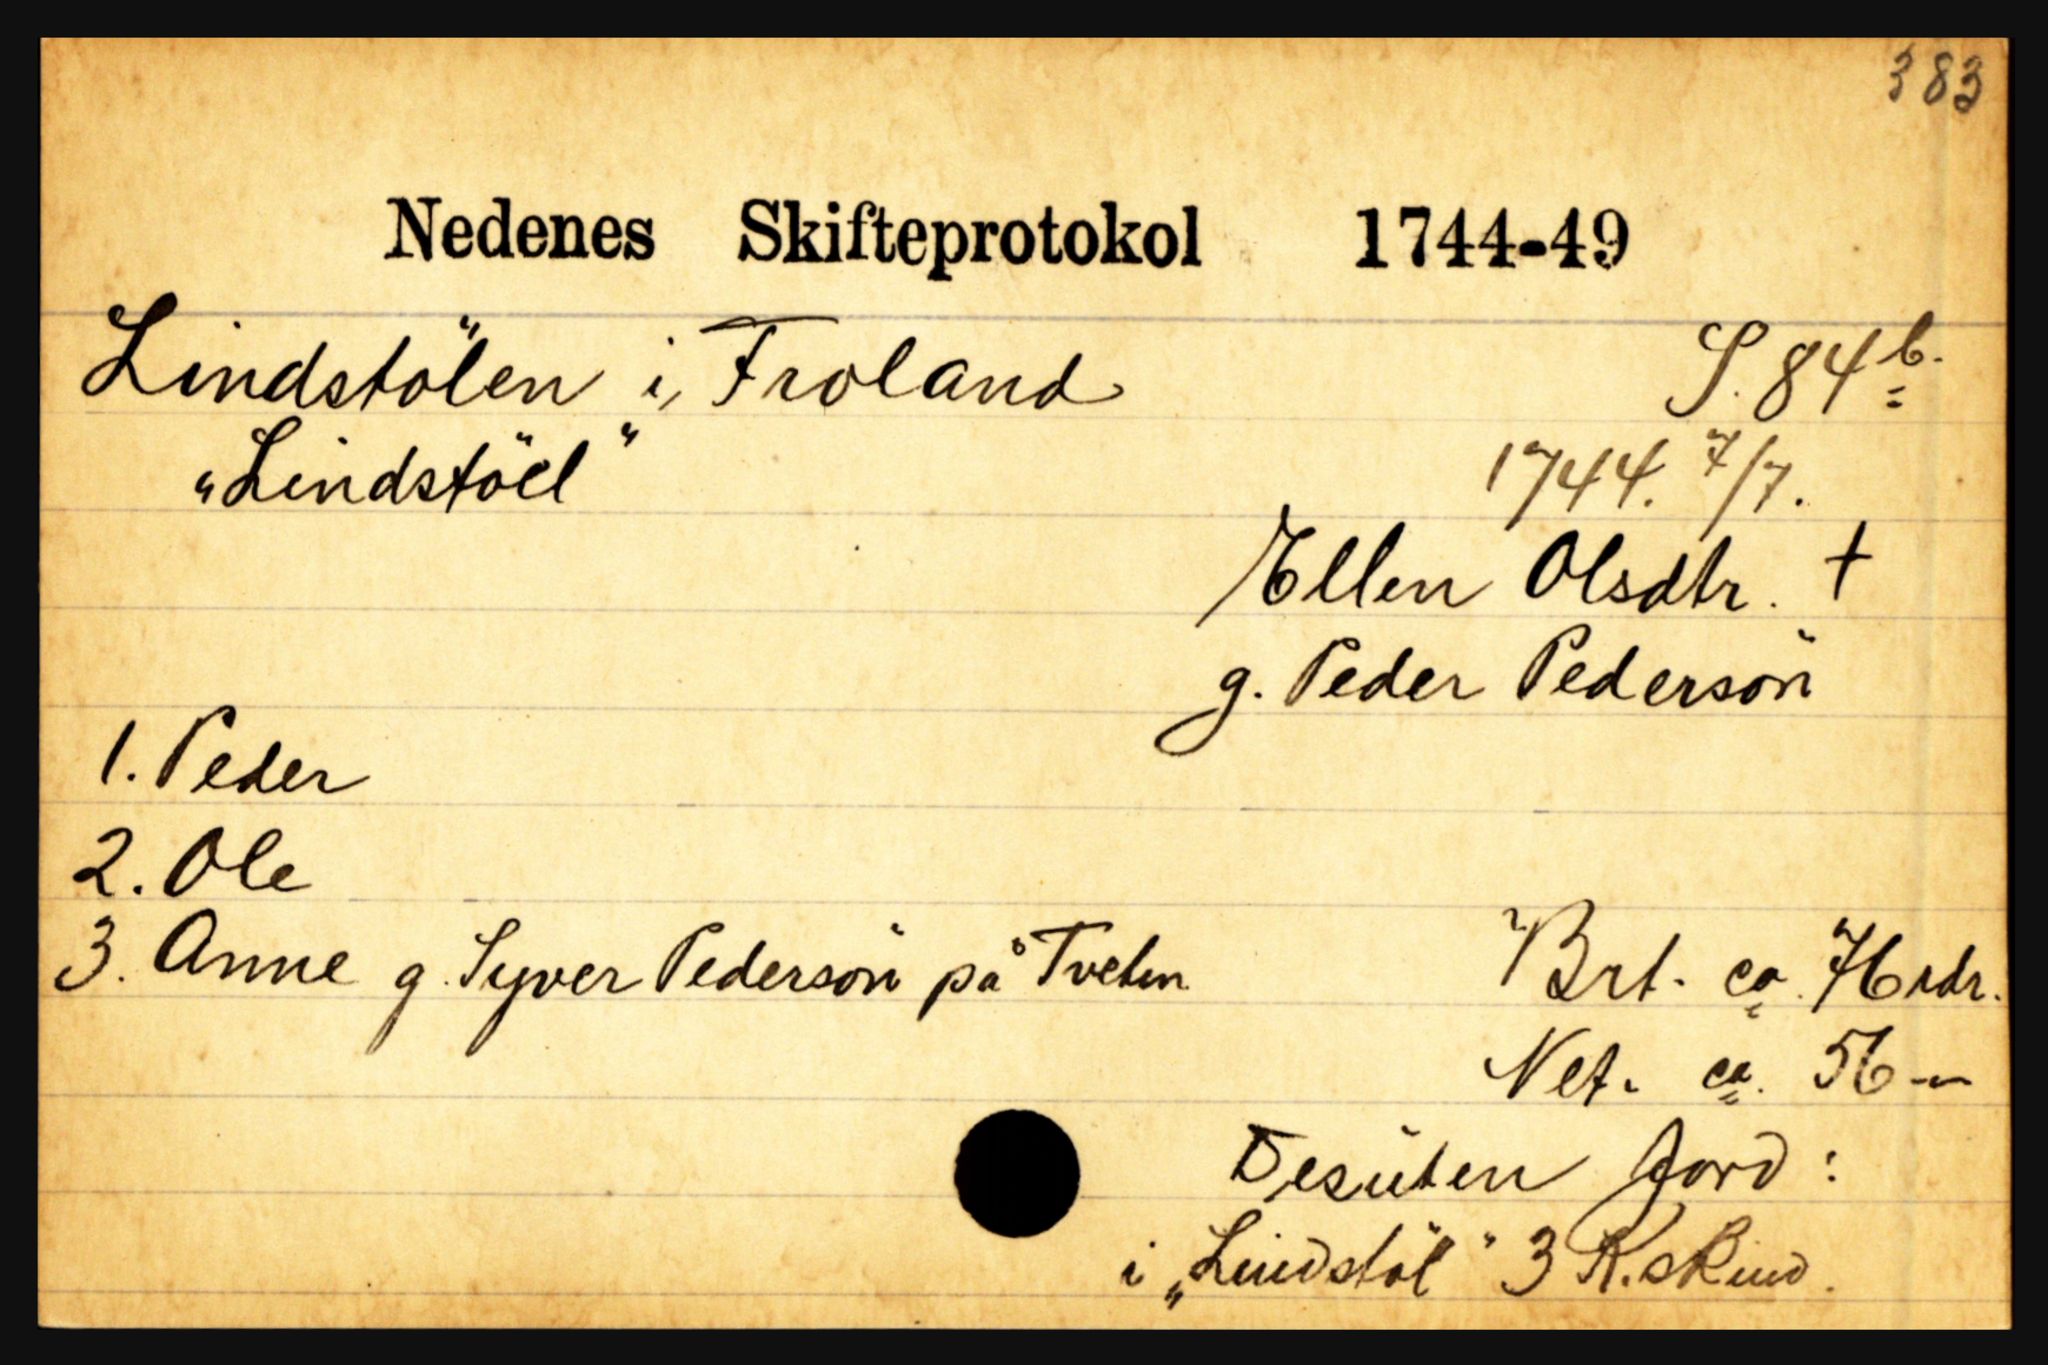 383
Nedenes Skifteprotokol 1744-49
Lindstölen i, Froland S. 84b.
„Lindstöel" 1744. 7/7.
Ellen Olsdtr. †
g. Peder Pedersön
1. Peder
2. Ole
3. Anne g. Syver Pedersön på Tveten Brt. ca. 76 rdr.
Net. ca. 56 -"-
Desuten Jord:
i „Lindstöl" 3 K.skind.